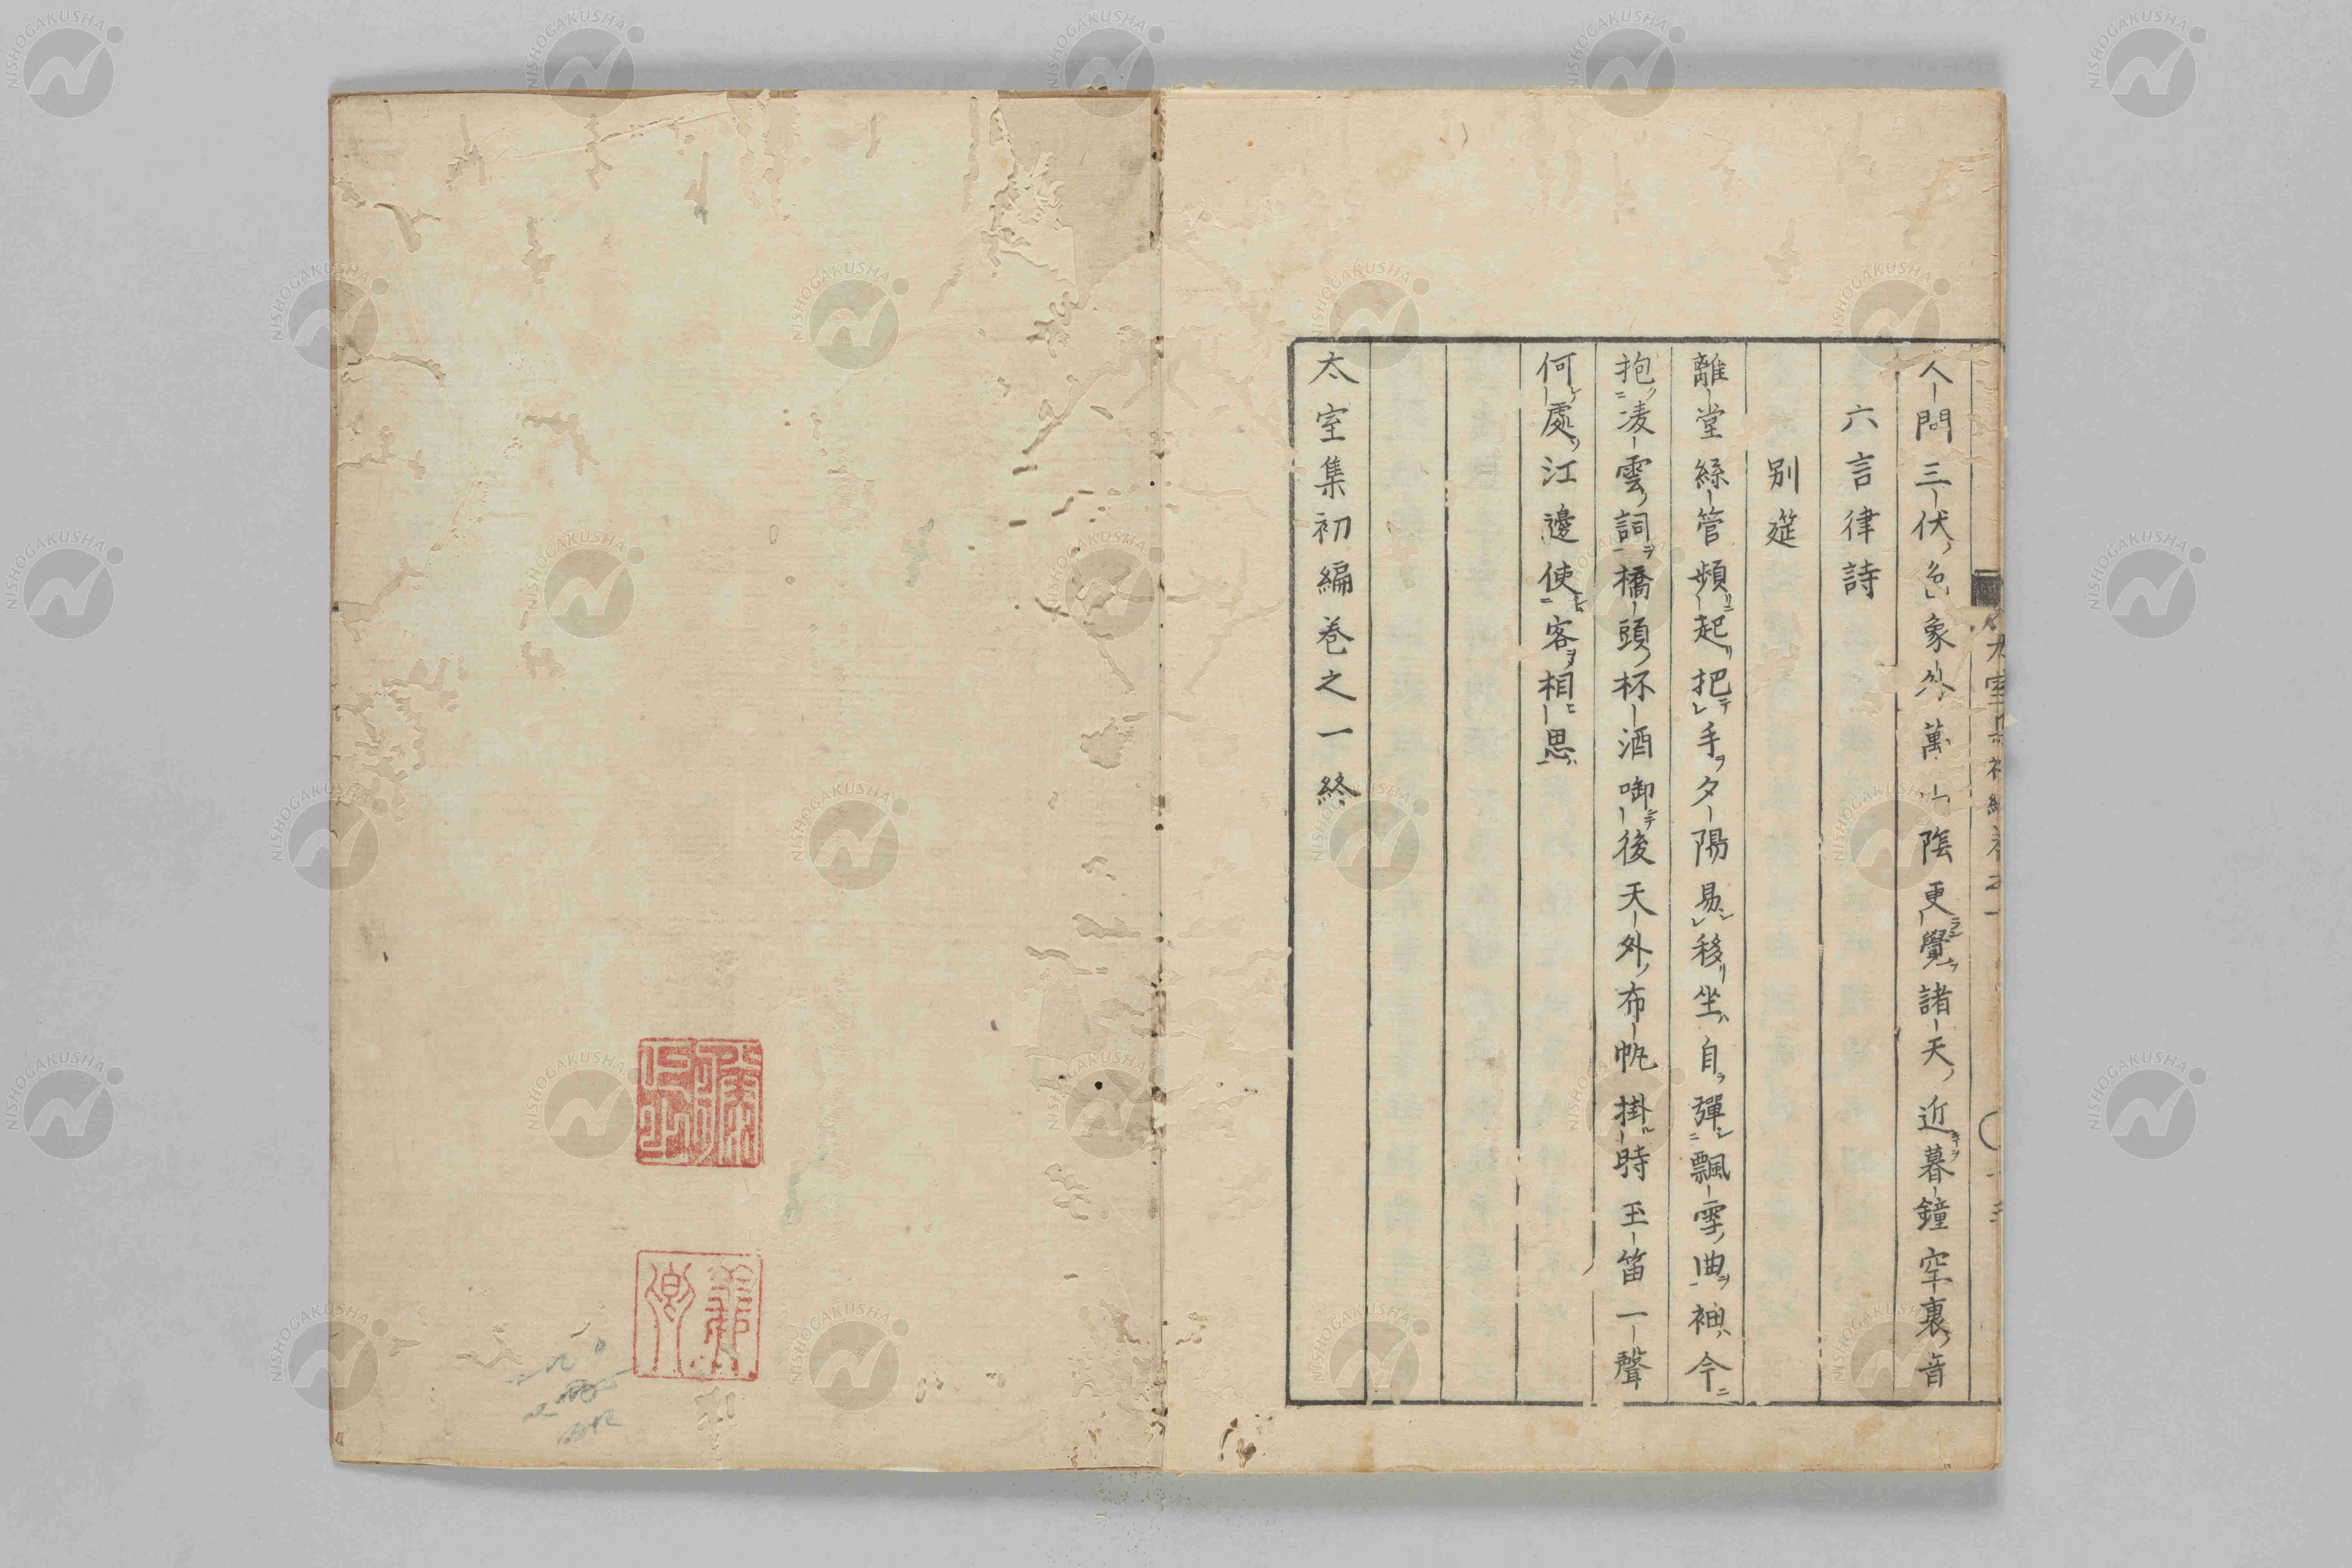 人問三伏色象外萬山陰更覺諸天近暮鐘空裏音
六言律詩
別筵
離堂絲管頻起把手夕陽易移坐自彈飄雪曲袖今
抱凌雲詞橋頭杯酒啣後天外布帆掛時玉笛一聲
何處江邊使客相思
太室集初編卷之一終
NISHOGAKUSHA